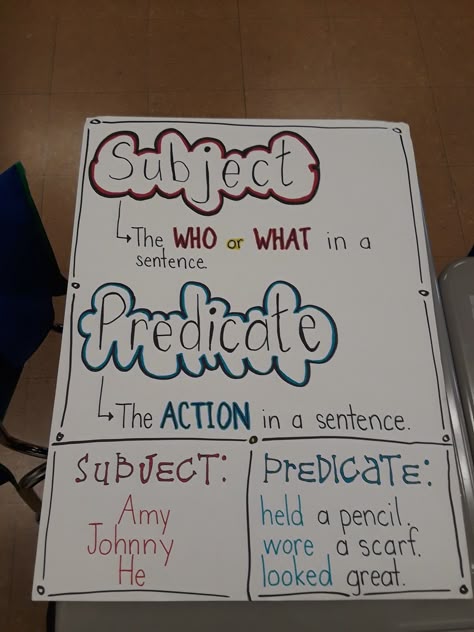 Subject
The WHO or WHAT in a
sentence.
Predicate
The ACTION in a sentence.
SUBJECT:
Amy
Johnny
He
PREDICATE:
held a pencil.
wore a scarf.
looked great.